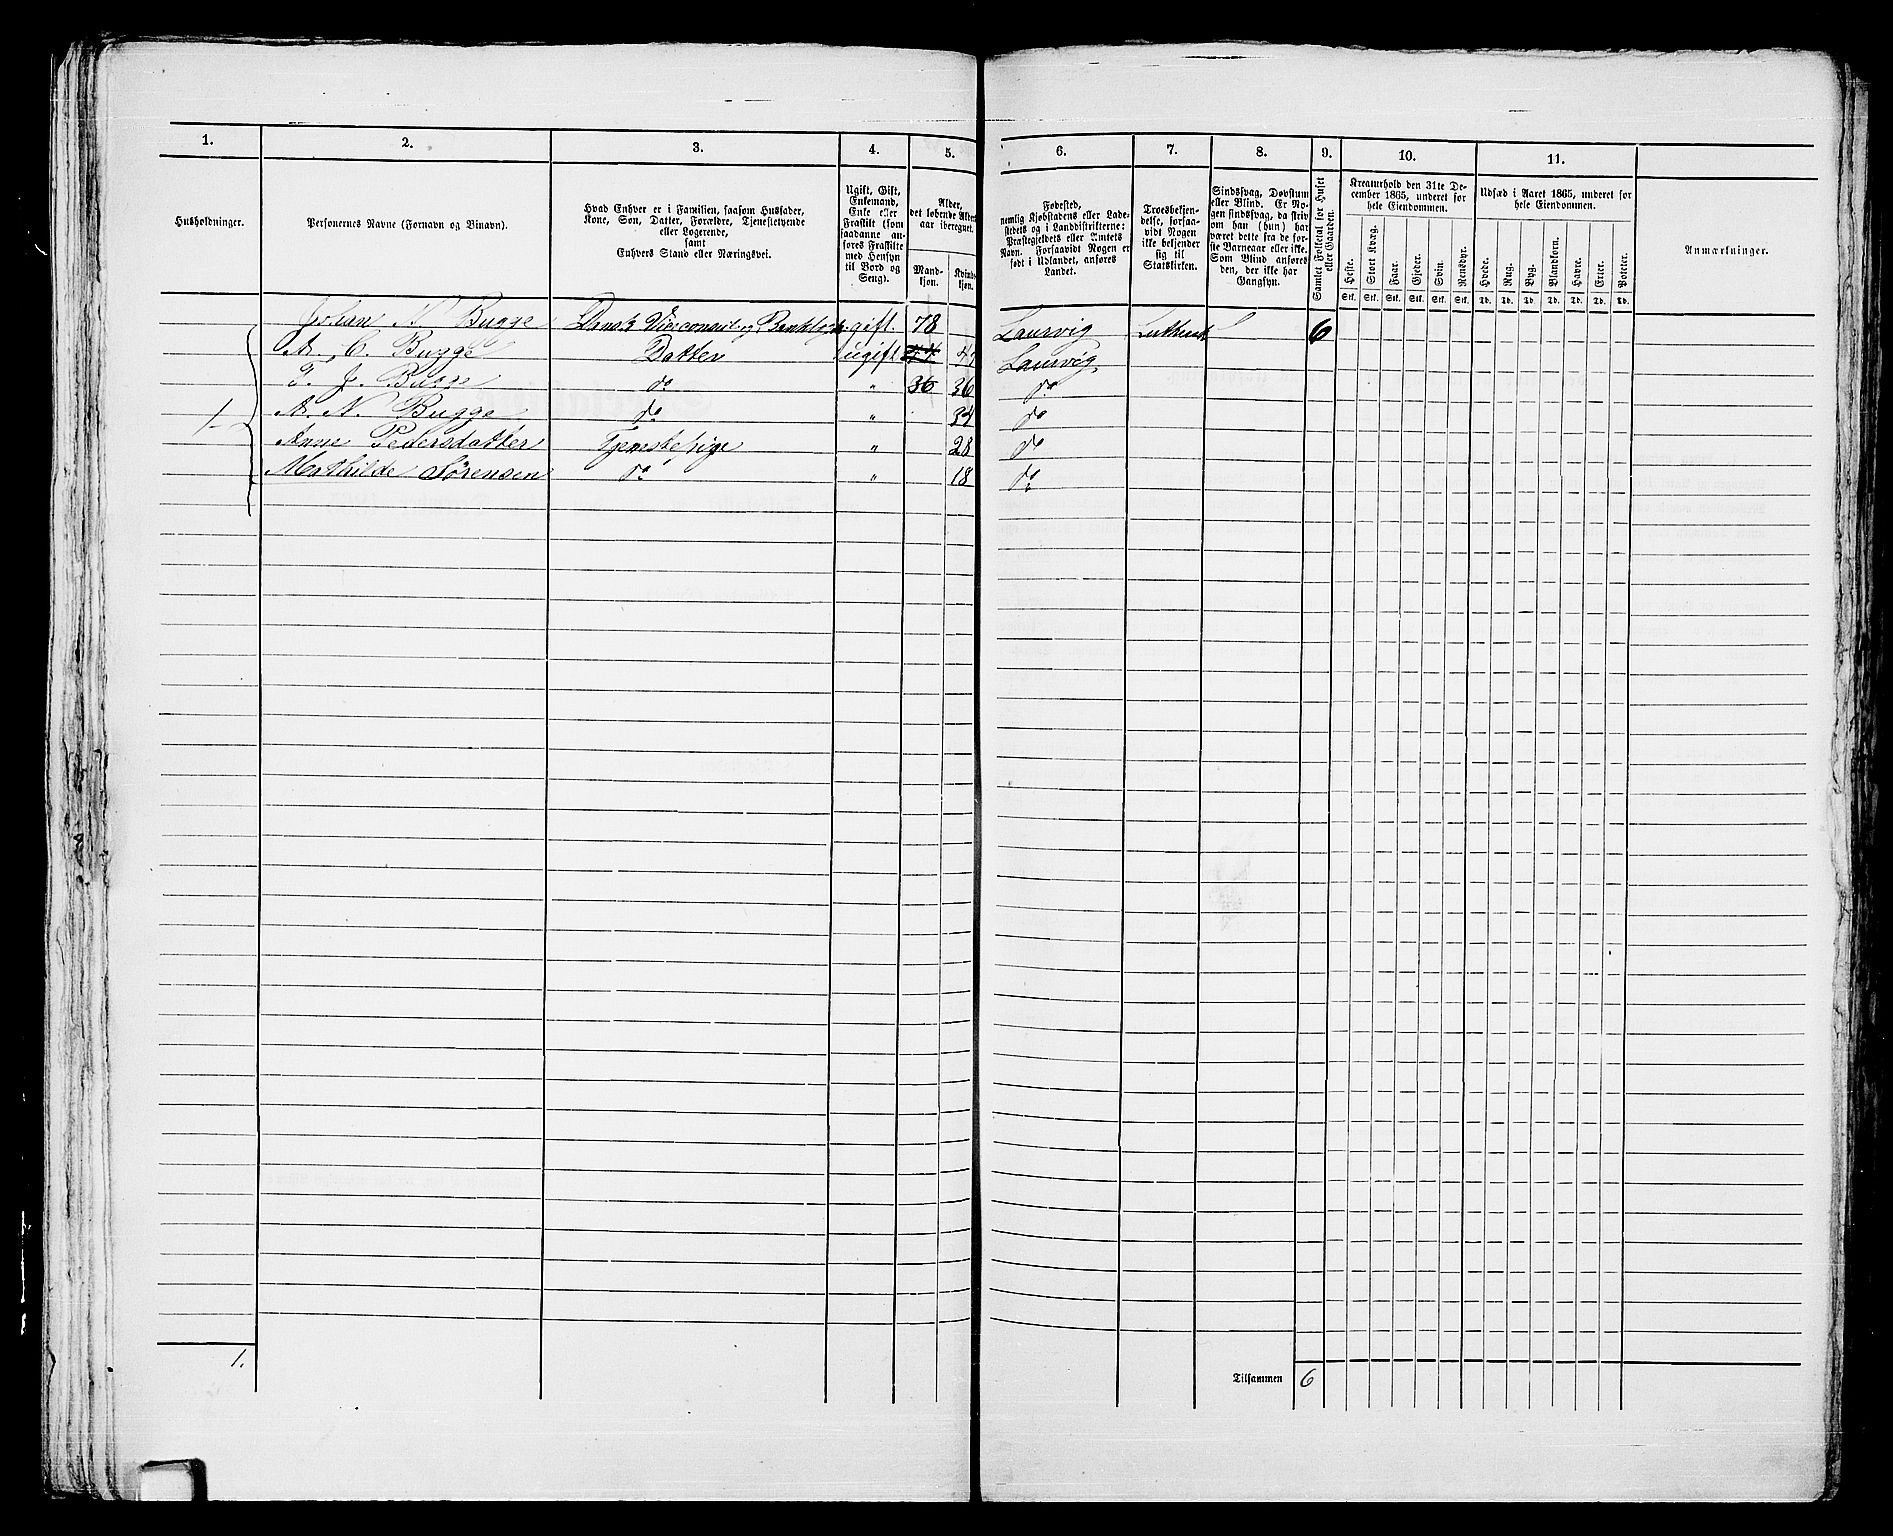 1. 2. 3. 4. 5. 6. 7. 8. 9. 10. 11.
Husholdninger.
Personernes Navne (Fornavn og Binavn).
Hvad Enhver er i Familien, saasom Husfader,
Kone, Søn, Datter, Forældre, Tjenestetyende
eller Logerende,
samt
Enhvers Stand eller Næringsvei.
Ugift, Gift,
Enkemand,
Enke eller
Fraskilt (som
saadanne an-
føres Fraskilte
med Hensyn
til Bord og
Seng).
Alder,
det løbende Alders-
aar iberegnet.
Mand-
kjøn.
Kvinde-
kjøn.
Fødested,
nemlig Kjøbstadens eller Lade-
stedets og i Landdistrikterne:
Præstegjeldets eller Amtets
Navn. Forsaavidt Nogen er
født i Udlandet, anføres
Landet.
Troesbekjen-
delse, forsaa-
vidt Nogen
ikke bekjender
sig til
Statskirken.
Sindssvag, Døvstum
eller Blind. Er No-
gen sindssvag, da skriv
om han (hun) har
været dette fra de før-
ste Barneaar eller ikke.
Som Blind anføres
den, der ikke har
Gangsyn.
Samlet Folketal for Huset
eller Gaarden.
Kreaturhold den 31te De-
cember 1865, underet for
hele Eiendommen.
Heste. Stort Kvæg. Faar. Gjeder. Svin. Rensdyr.
Stk. Stk. Stk. Stk. Stk. Stk.
Udsæd i Aaret 1865, underet for
hele Eiendommen.
Hvede. Rug. Byg. Blandkorn. Havre. Erter. Poteter.
Td. Td. Td. Td. Td. Td. Td.
Anmærkninger.
Johan N. Bugge Dansk Viceconsul og gift 78 Laurvig 6
A. C. Bugge Datter ugift Laurvig
T. J. Bugge do " 36 36 do
1 A. N. Bugge do " 34 do
Anne Pedersdatter Tjenestepige " 28 do
Mathilde Sörensen do " 18 do
1.
Tilsammen 6